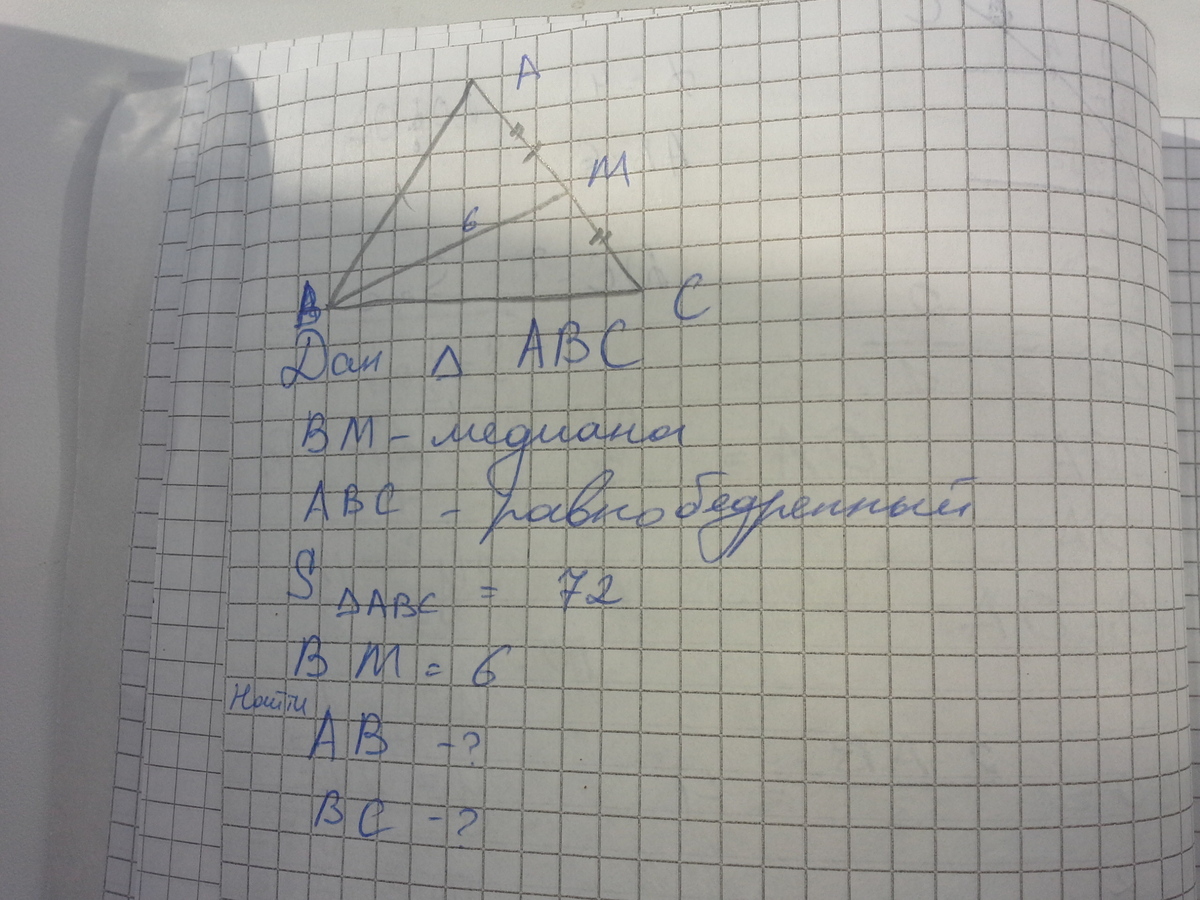 A
M
6
B
C
Дан Δ ABC
BM - медиана
ABC - равнобедренный
S ΔABC = 72
BM = 6
Найти
AB -?
BC -?